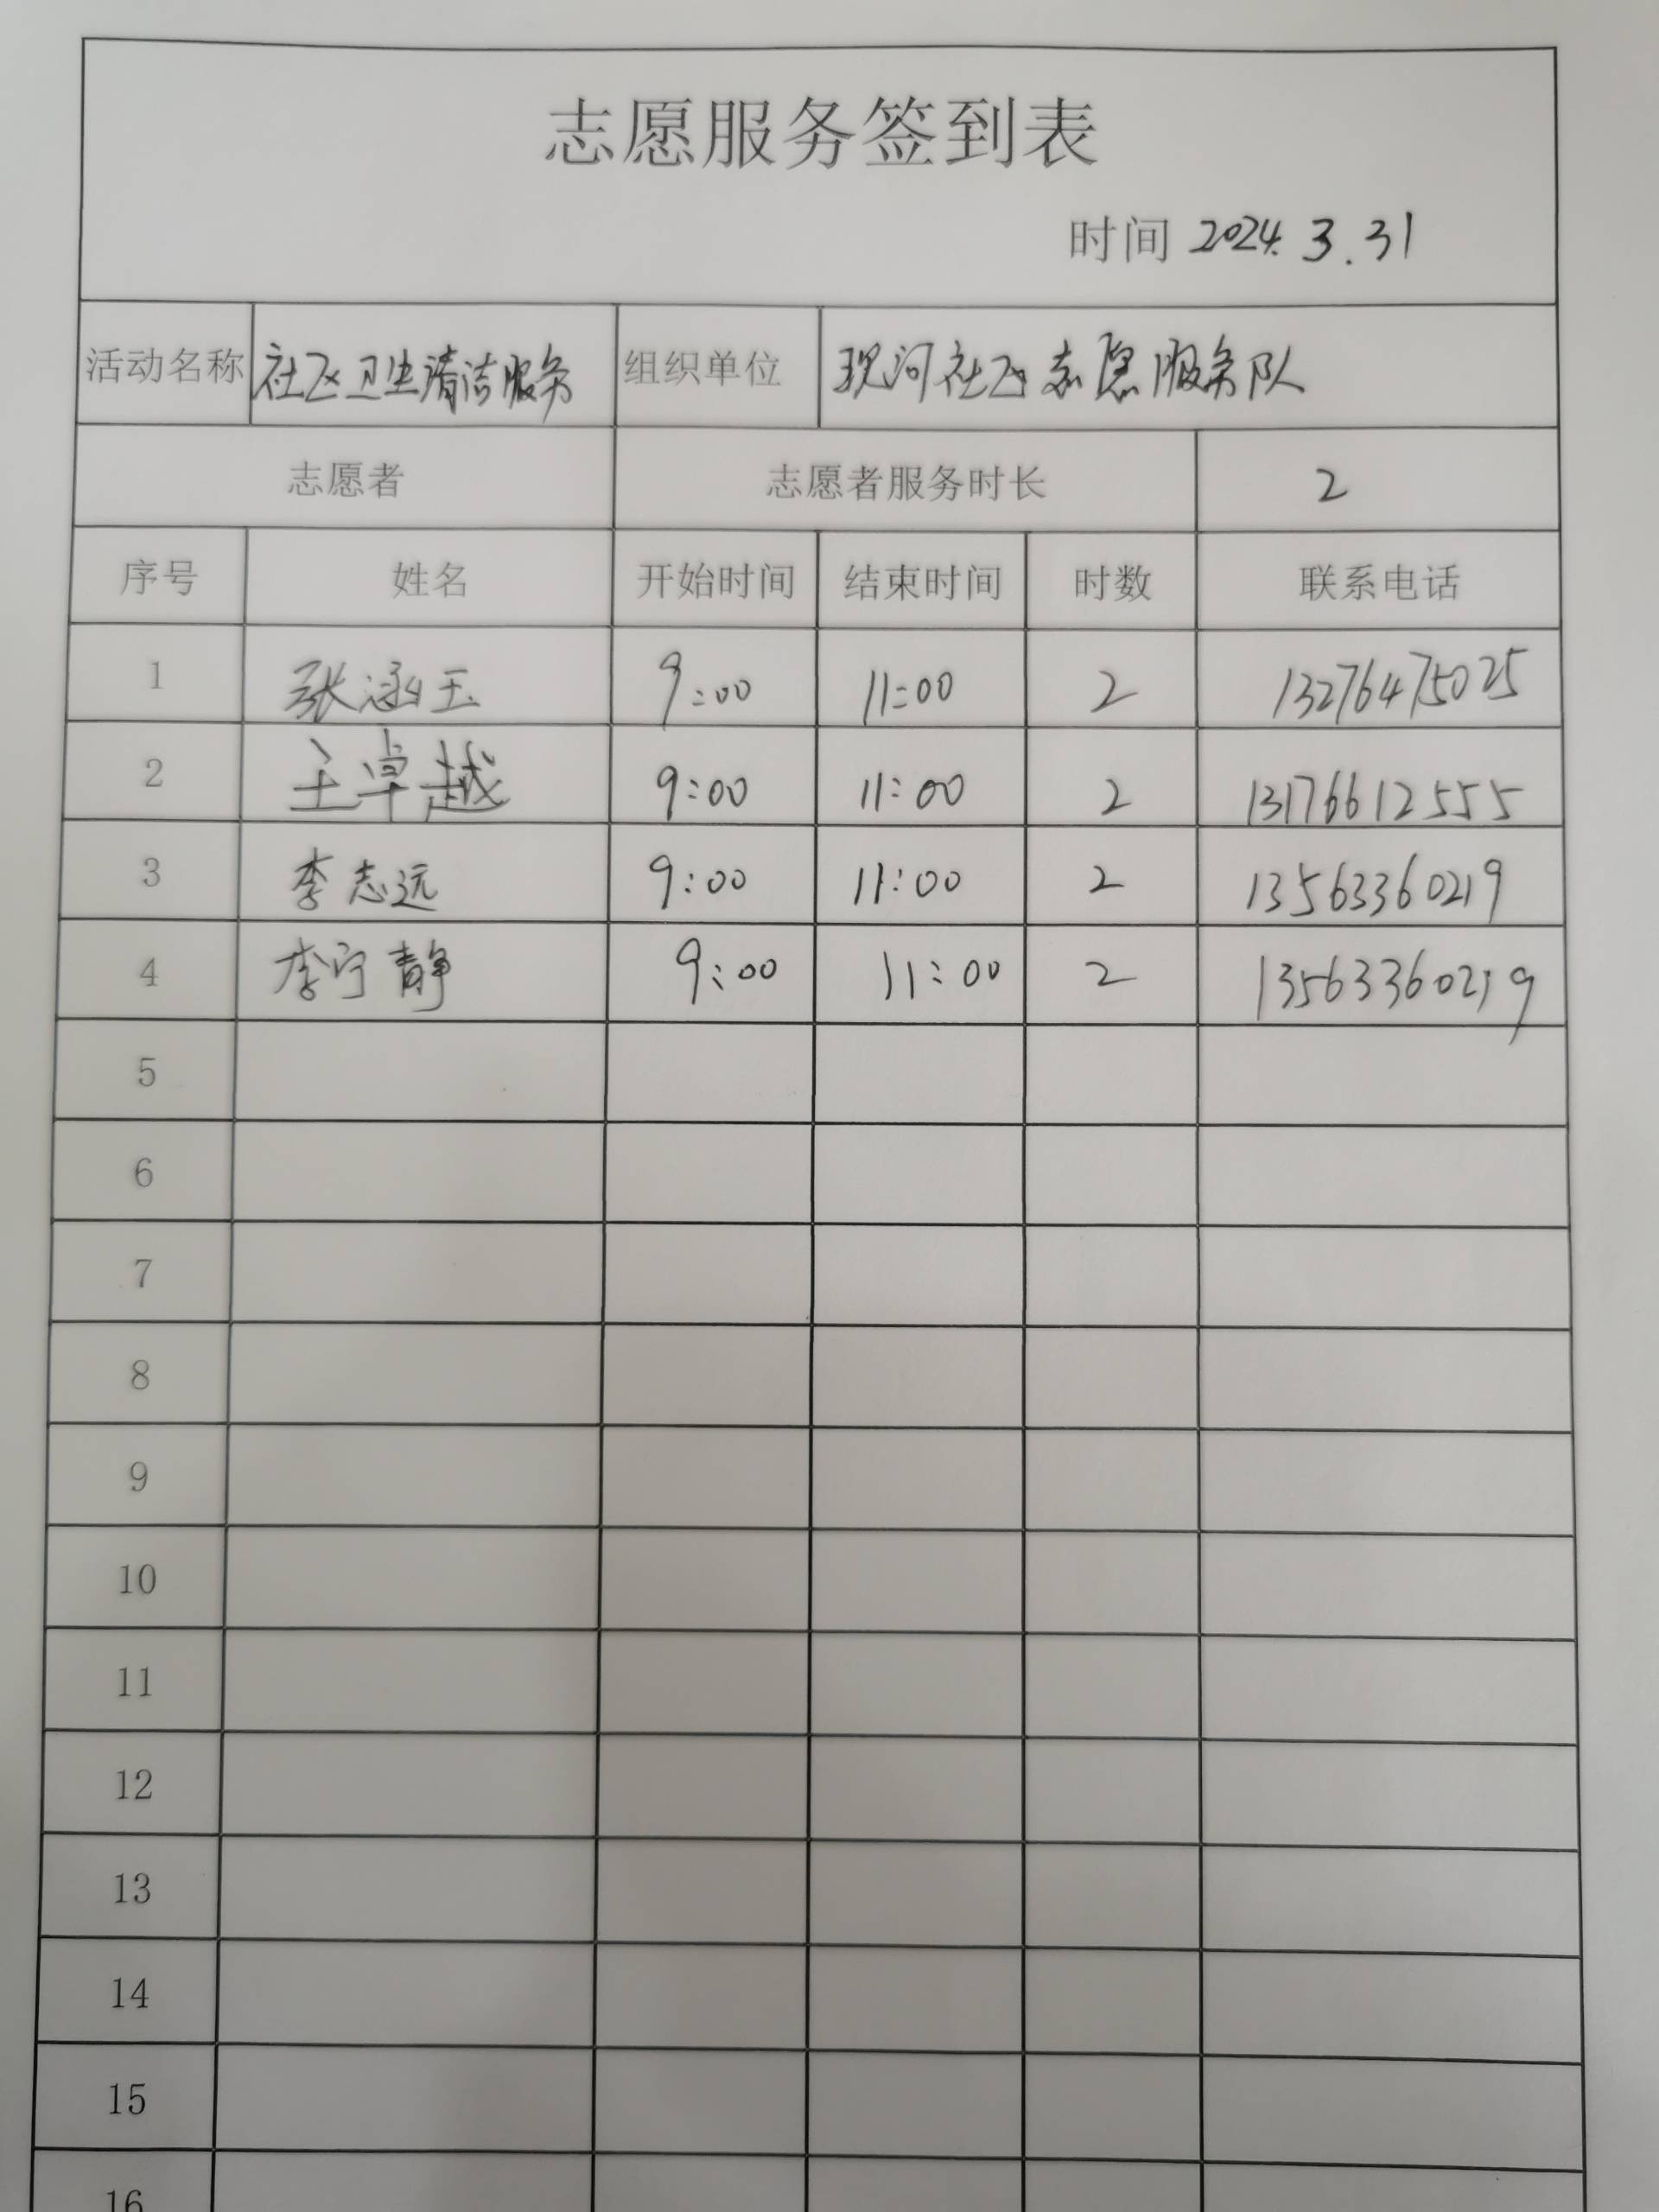 志愿服务签到表
时间 2024.3.31
活动名称 社区卫生清洁服务 组织单位 现河社区志愿服务队
志愿者 志愿者服务时长 2
序号 姓名 开始时间 结束时间 时数 联系电话
1 张涵玉 9:00 11:00 2 13276475025
2 王卓越 9:00 11:00 2 13176612555
3 李志远 9:00 11:00 2 13563360219
4 李宁静 9:00 11:00 2 13563360219
5
6
7
8
9
10
11
12
13
14
15
16